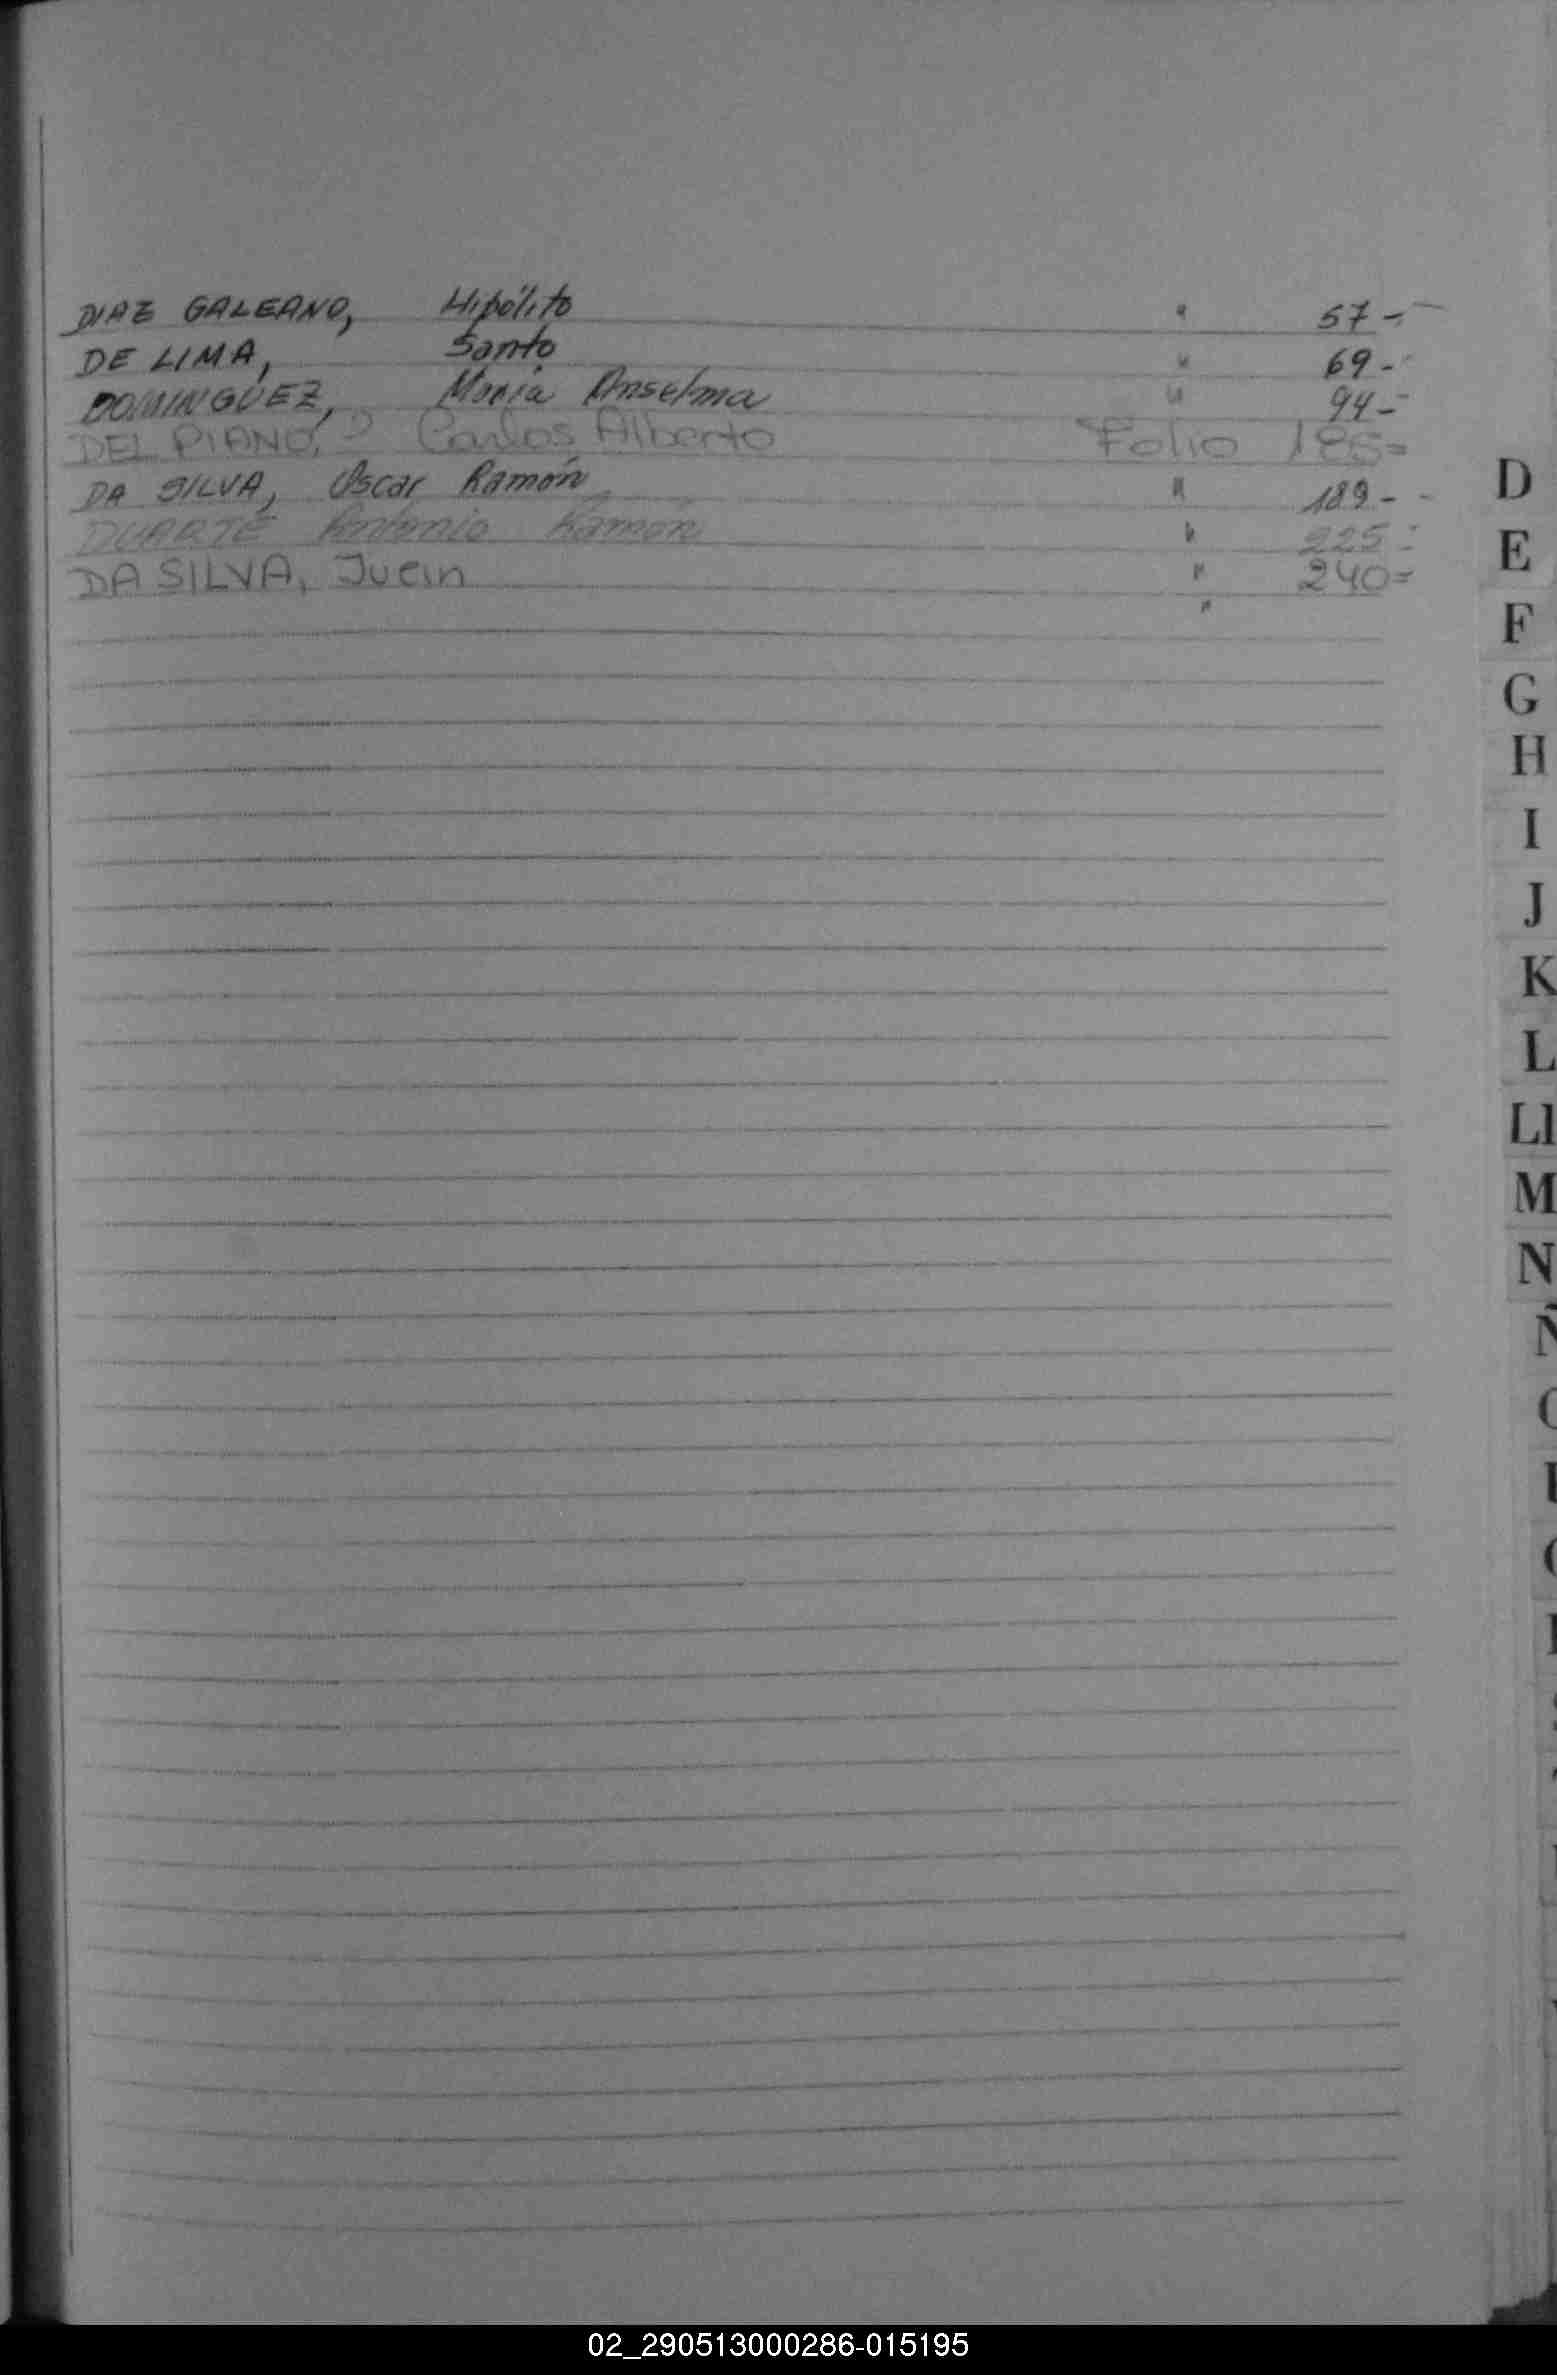 DIAZ GALEANO, Hipólito " 57-
DE LIMA, Santo " 69-
DOMINGUEZ, María Anselma " 94-
DEL PIANO, Carlos Alberto Folio 185=
DA SILVA, Oscar Ramón " 189-
DUARTE Antonio Ramón " 225=
DA SILVA, Juan " 240=
"
D
E
F
G
H
I
J
K
L
Ll
M
N
Ñ
02_290513000286-015195